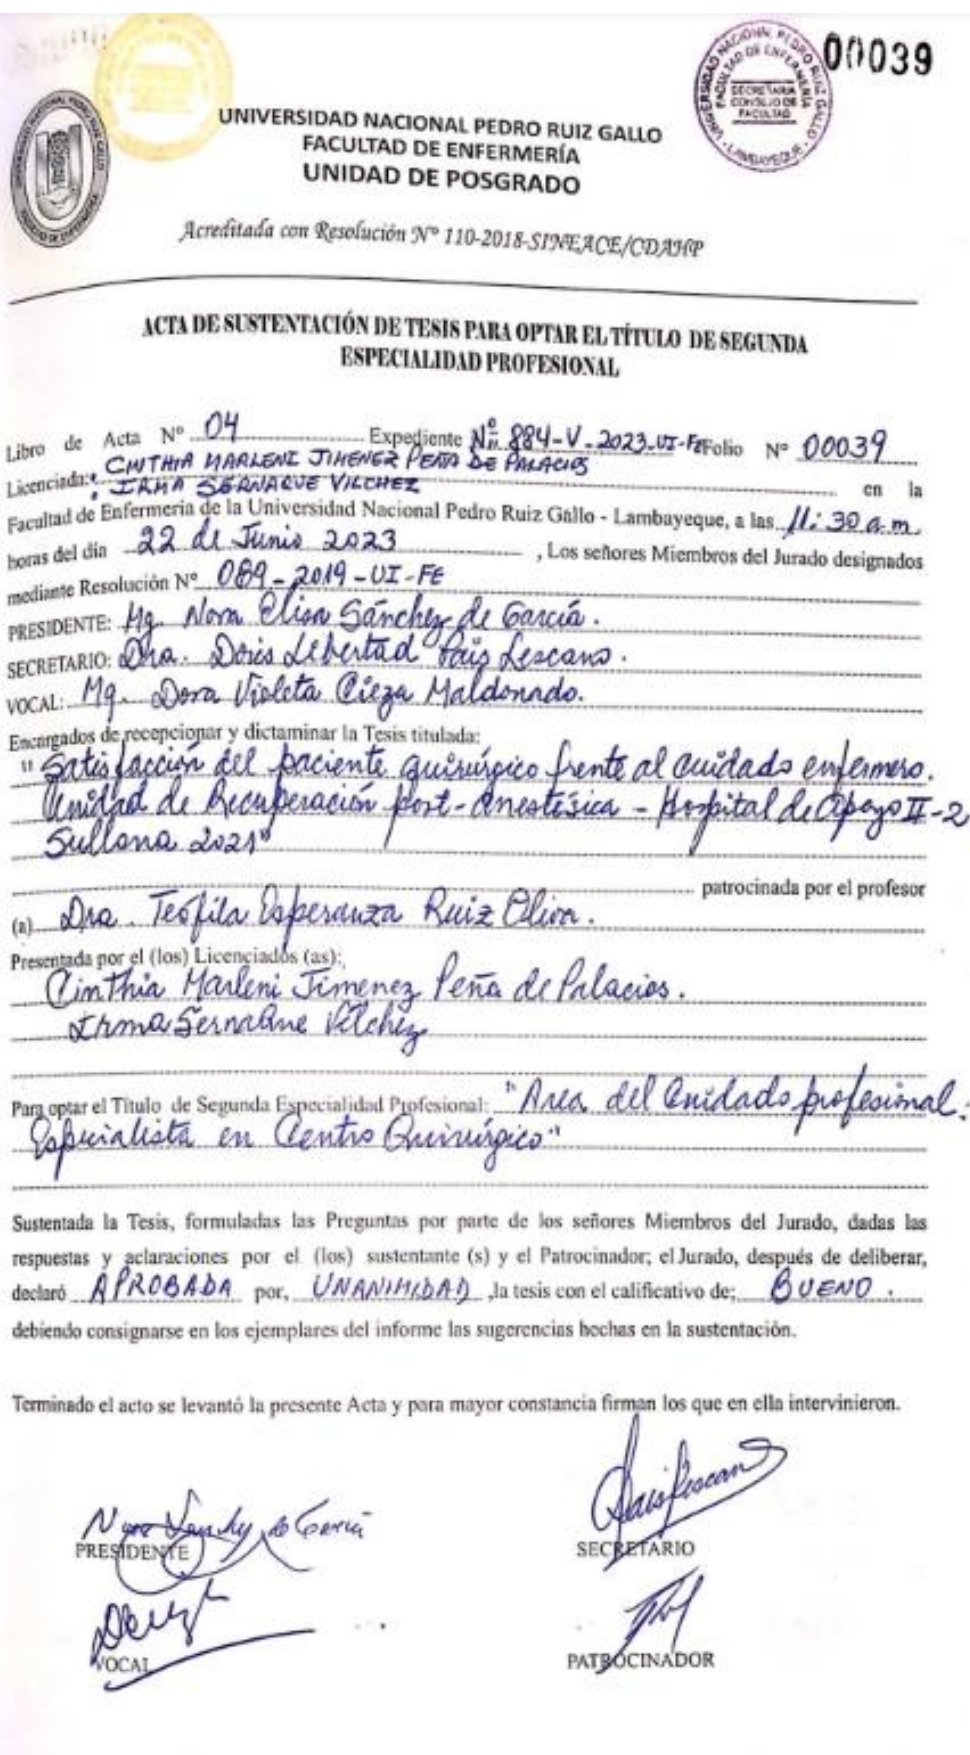 00039
UNIVERSIDAD NACIONAL PEDRO RUIZ GALLO
FACULTAD DE ENFERMERÍA
SECRETARIA
CONSEJO DE
FACULTAD
LAMBAYEQUE
UNIVERSIDAD NACIONAL PEDRO RUIZ GALLO
FACULTAD DE ENFERMERÍA
UNIDAD DE POSGRADO
Acreditada con Resolución Nº 110-2018-SINEACE/CDAHP
ACTA DE SUSTENTACIÓN DE TESIS PARA OPTAR EL TÍTULO DE SEGUNDA
ESPECIALIDAD PROFESIONAL
Libro de Acta Nº 04 Expediente Nº 884-V-2023-UI-FE Folio Nº 00039
Licenciada: CINTHIA MARLENI JIMENEZ PEÑA DE PALACIOS
IRMA SERNAQUE VILCHEZ en la
Facultad de Enfermería de la Universidad Nacional Pedro Ruiz Gallo - Lambayeque, a las 11:30 a.m.
horas del día 22 de Junio 2023, Los señores Miembros del Jurado designados
mediante Resolución Nº 089-2019-UI-FE
PRESIDENTE: Mg. Nora Elisa Sánchez de García.
SECRETARIO: Dra. Doris Libertad Lescano.
VOCAL: Mg. Dora Violeta Cieza Maldonado.
Encargados de recepcionar y dictaminar la Tesis titulada:
"Satisfacción del paciente quirúrgico frente al cuidado enfermero.
Unidad de Recuperación post-anestésica - Hospital de Apoyo II-2
Sullana 2021"
patrocinada por el profesor
(a) Dra. Teófila Esperanza Ruiz Oliva.
Presentada por el (los) Licenciados (as):
Cinthia Marleni Jimenez Peña de Palacios.
Irma Sernaque Vilchez
Para optar el Título de Segunda Especialidad Profesional: "Area del Cuidado profesional:
Especialista en Centro Quirúrgico"
Sustentada la Tesis, formuladas las Preguntas por parte de los señores Miembros del Jurado, dadas las
respuestas y aclaraciones por el (los) sustentante (s) y el Patrocinador; el Jurado, después de deliberar,
declaró APROBADA por, UNANIMIDAD ,la tesis con el calificativo de; BUENO.
debiendo consignarse en los ejemplares del informe las sugerencias hechas en la sustentación.
Terminado el acto se levantó la presente Acta y para mayor constancia firman los que en ella intervinieron.
PRESIDENTE
SECRETARIO
VOCAL
PATROCINADOR